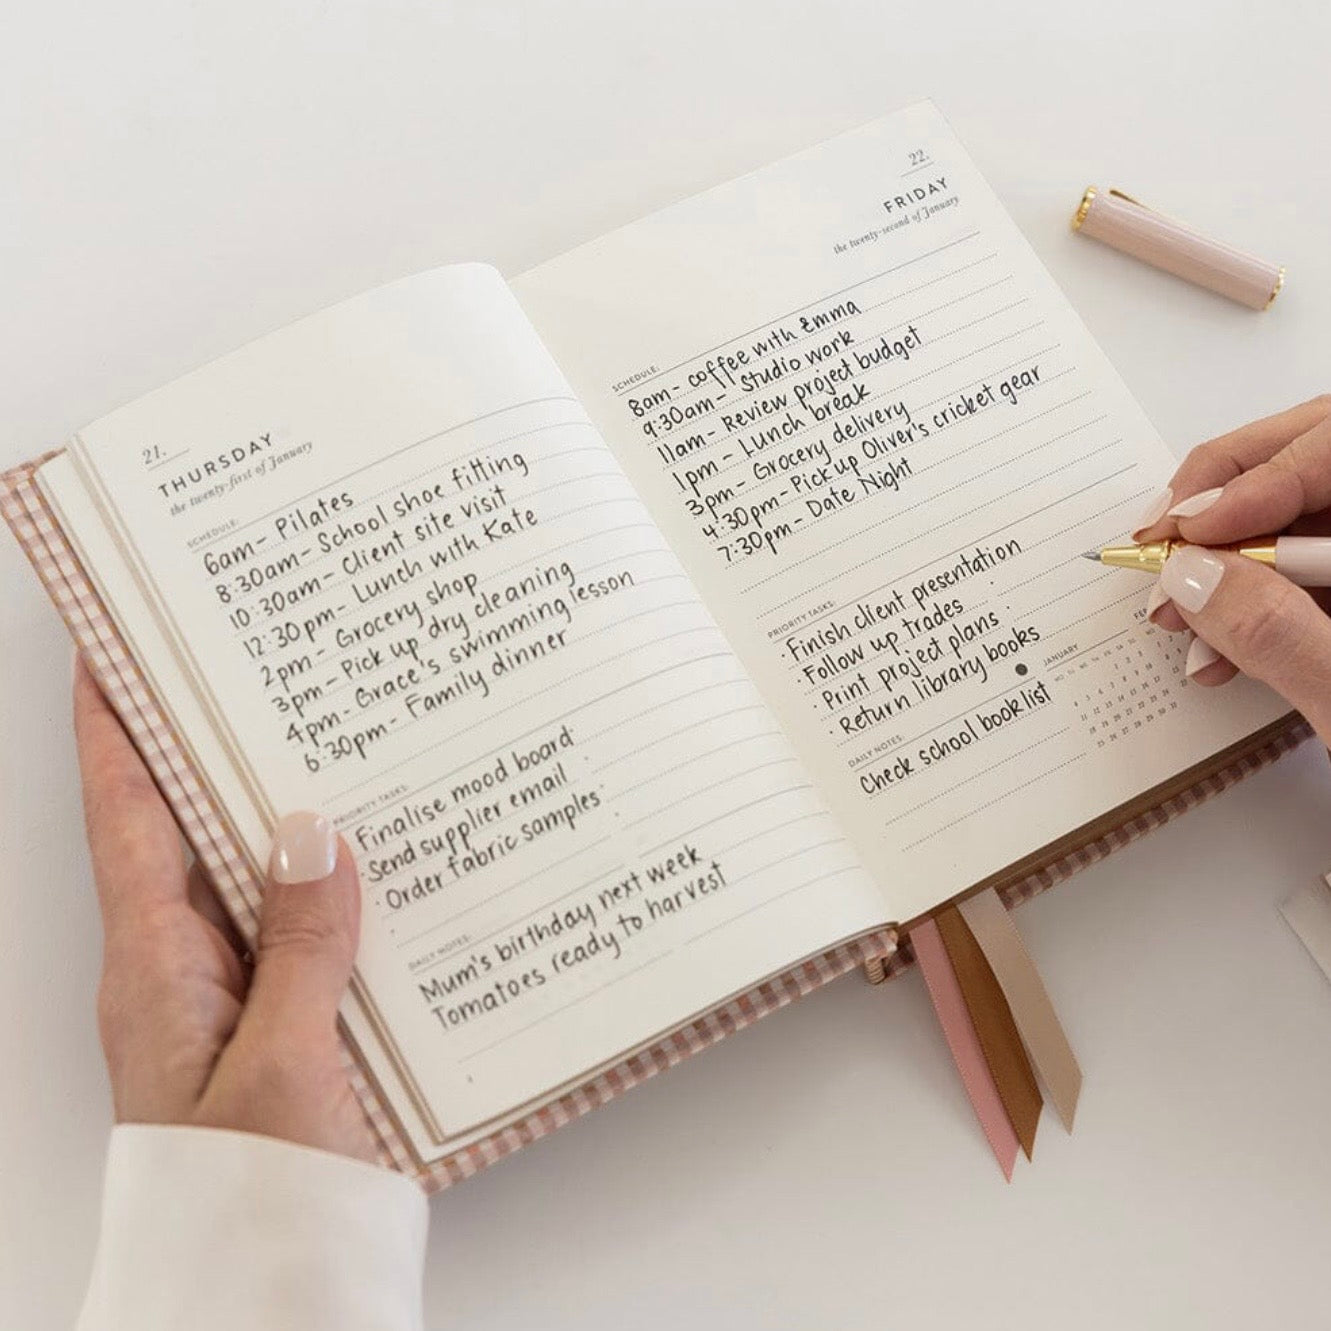 21.
THURSDAY
the twenty-first of January
SCHEDULE:
6am - Pilates
8:30am - School shoe fitting
10:30am - Client site visit
12:30pm - Lunch with Kate
2pm - Grocery shop
3pm - Pick up dry cleaning
4pm - Grace's swimming lesson
6:30pm - Family dinner
PRIORITY TASKS:
Finalise mood board
·Send supplier email
·Order fabric samples
DAILY NOTES:
Mum's birthday next week
Tomatoes ready to harvest
22.
FRIDAY
the twenty-second of January
SCHEDULE:
8am - coffee with Emma
9:30am - Studio work
11am - Review project budget
1pm - Lunch break
3pm - Grocery delivery
4:30pm - Pick up Oliver's cricket gear
7:30pm - Date Night
PRIORITY TASKS:
·Finish client presentation
·Follow up trades
·Print project plans
·Return library books
DAILY NOTES:
Check school book list
JANUARY